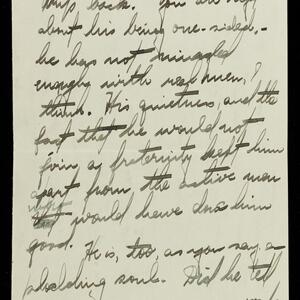 back. You are right
about his being one-sided,-
he has not mingled
enough with real men, I
think. His quietness, and the
fact that he would not
join a fraternity kept him
apart from the active men
who would have done him
good. He is, too, as you say, a
plodding soul. Did he tell